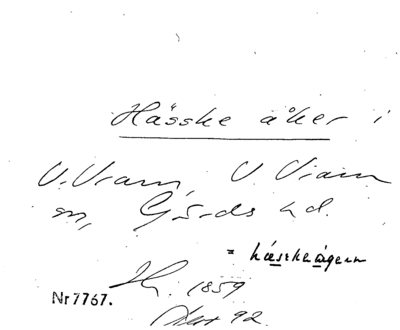 Hässke åker i
V. Vram, V. Vram
sn, Gärds hd.
= hässkeågern
1859
Nr 7767.
92.